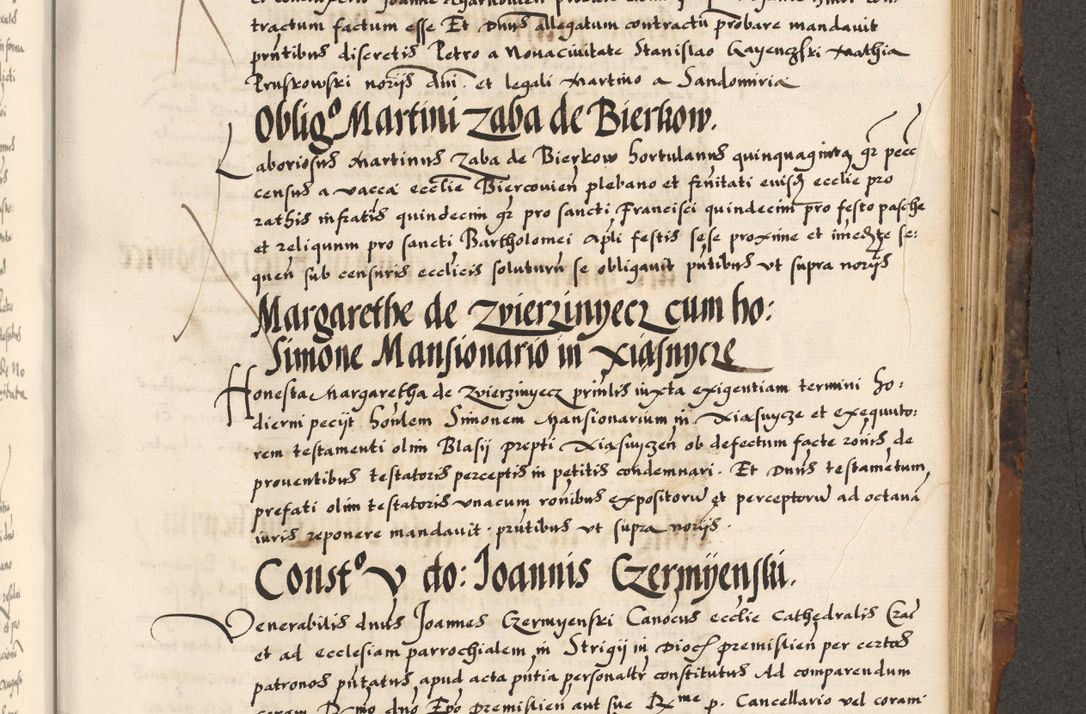 tractum factum esse Et Dnus allegatum contractū probare mandavit
pn̄tibus discretis Petro a Novacivitate Stanislao Gayenczski Mathia
Pruskowski norijs dni. et legali Martino a Sandomiria
Obligo. Martini Zaba de Bierkow.
Laboriosus Martinus Zaba de Bierkow hortulanus quinquaginta gr pecc
census a vacca ecclie Biercovien plebano et fr̄nitati eiusd ecclie pro
rathis infratis quindecim gr pro sancti Francisci quindecim pro festo pasche
et reliquum pro sancti Bartholomei Apli festis sese proxime et imedte se:
quen sub censuris ecclicis soluturū se obligavit pn̄tibus vt supra norijs
Margarethe de Zvierzinyecz cum ho:
Simone Mansionario in Xiasnycze
Honesta Margaretha de Zvierzinyecz prin̄lis iuxta exigentiam termini ho:
dierni pecijt hon̄lem Simonem Mansionarium in Xiasnycze et exequuto:
rem testamenti olim Blasij prepti Xiasnyczen ob defectum facte ronis de
proventibus testatoris perceptis in petitis condemnari. Et Dnus testametum
prefati olim testatoris vnacum ronibus expositorū et perceptorū ad octavā
iuris reponere mandavit. prn̄tibus vt supra norijs.
Consto v do: Joannis Czermyenski.
Venerabilis dnus Joannes Czermyenski Canocus ecclie Cathedralis Cra
et ad ecclesiam parrochialem in Strigij in Dioc premislien per certos
patronos pn̄tatus apud acta pn̄tia personalr constitutus Ad comparendum
coram Rmo dno Epo Premislien aut sue Rme p. Cancellario vel coram